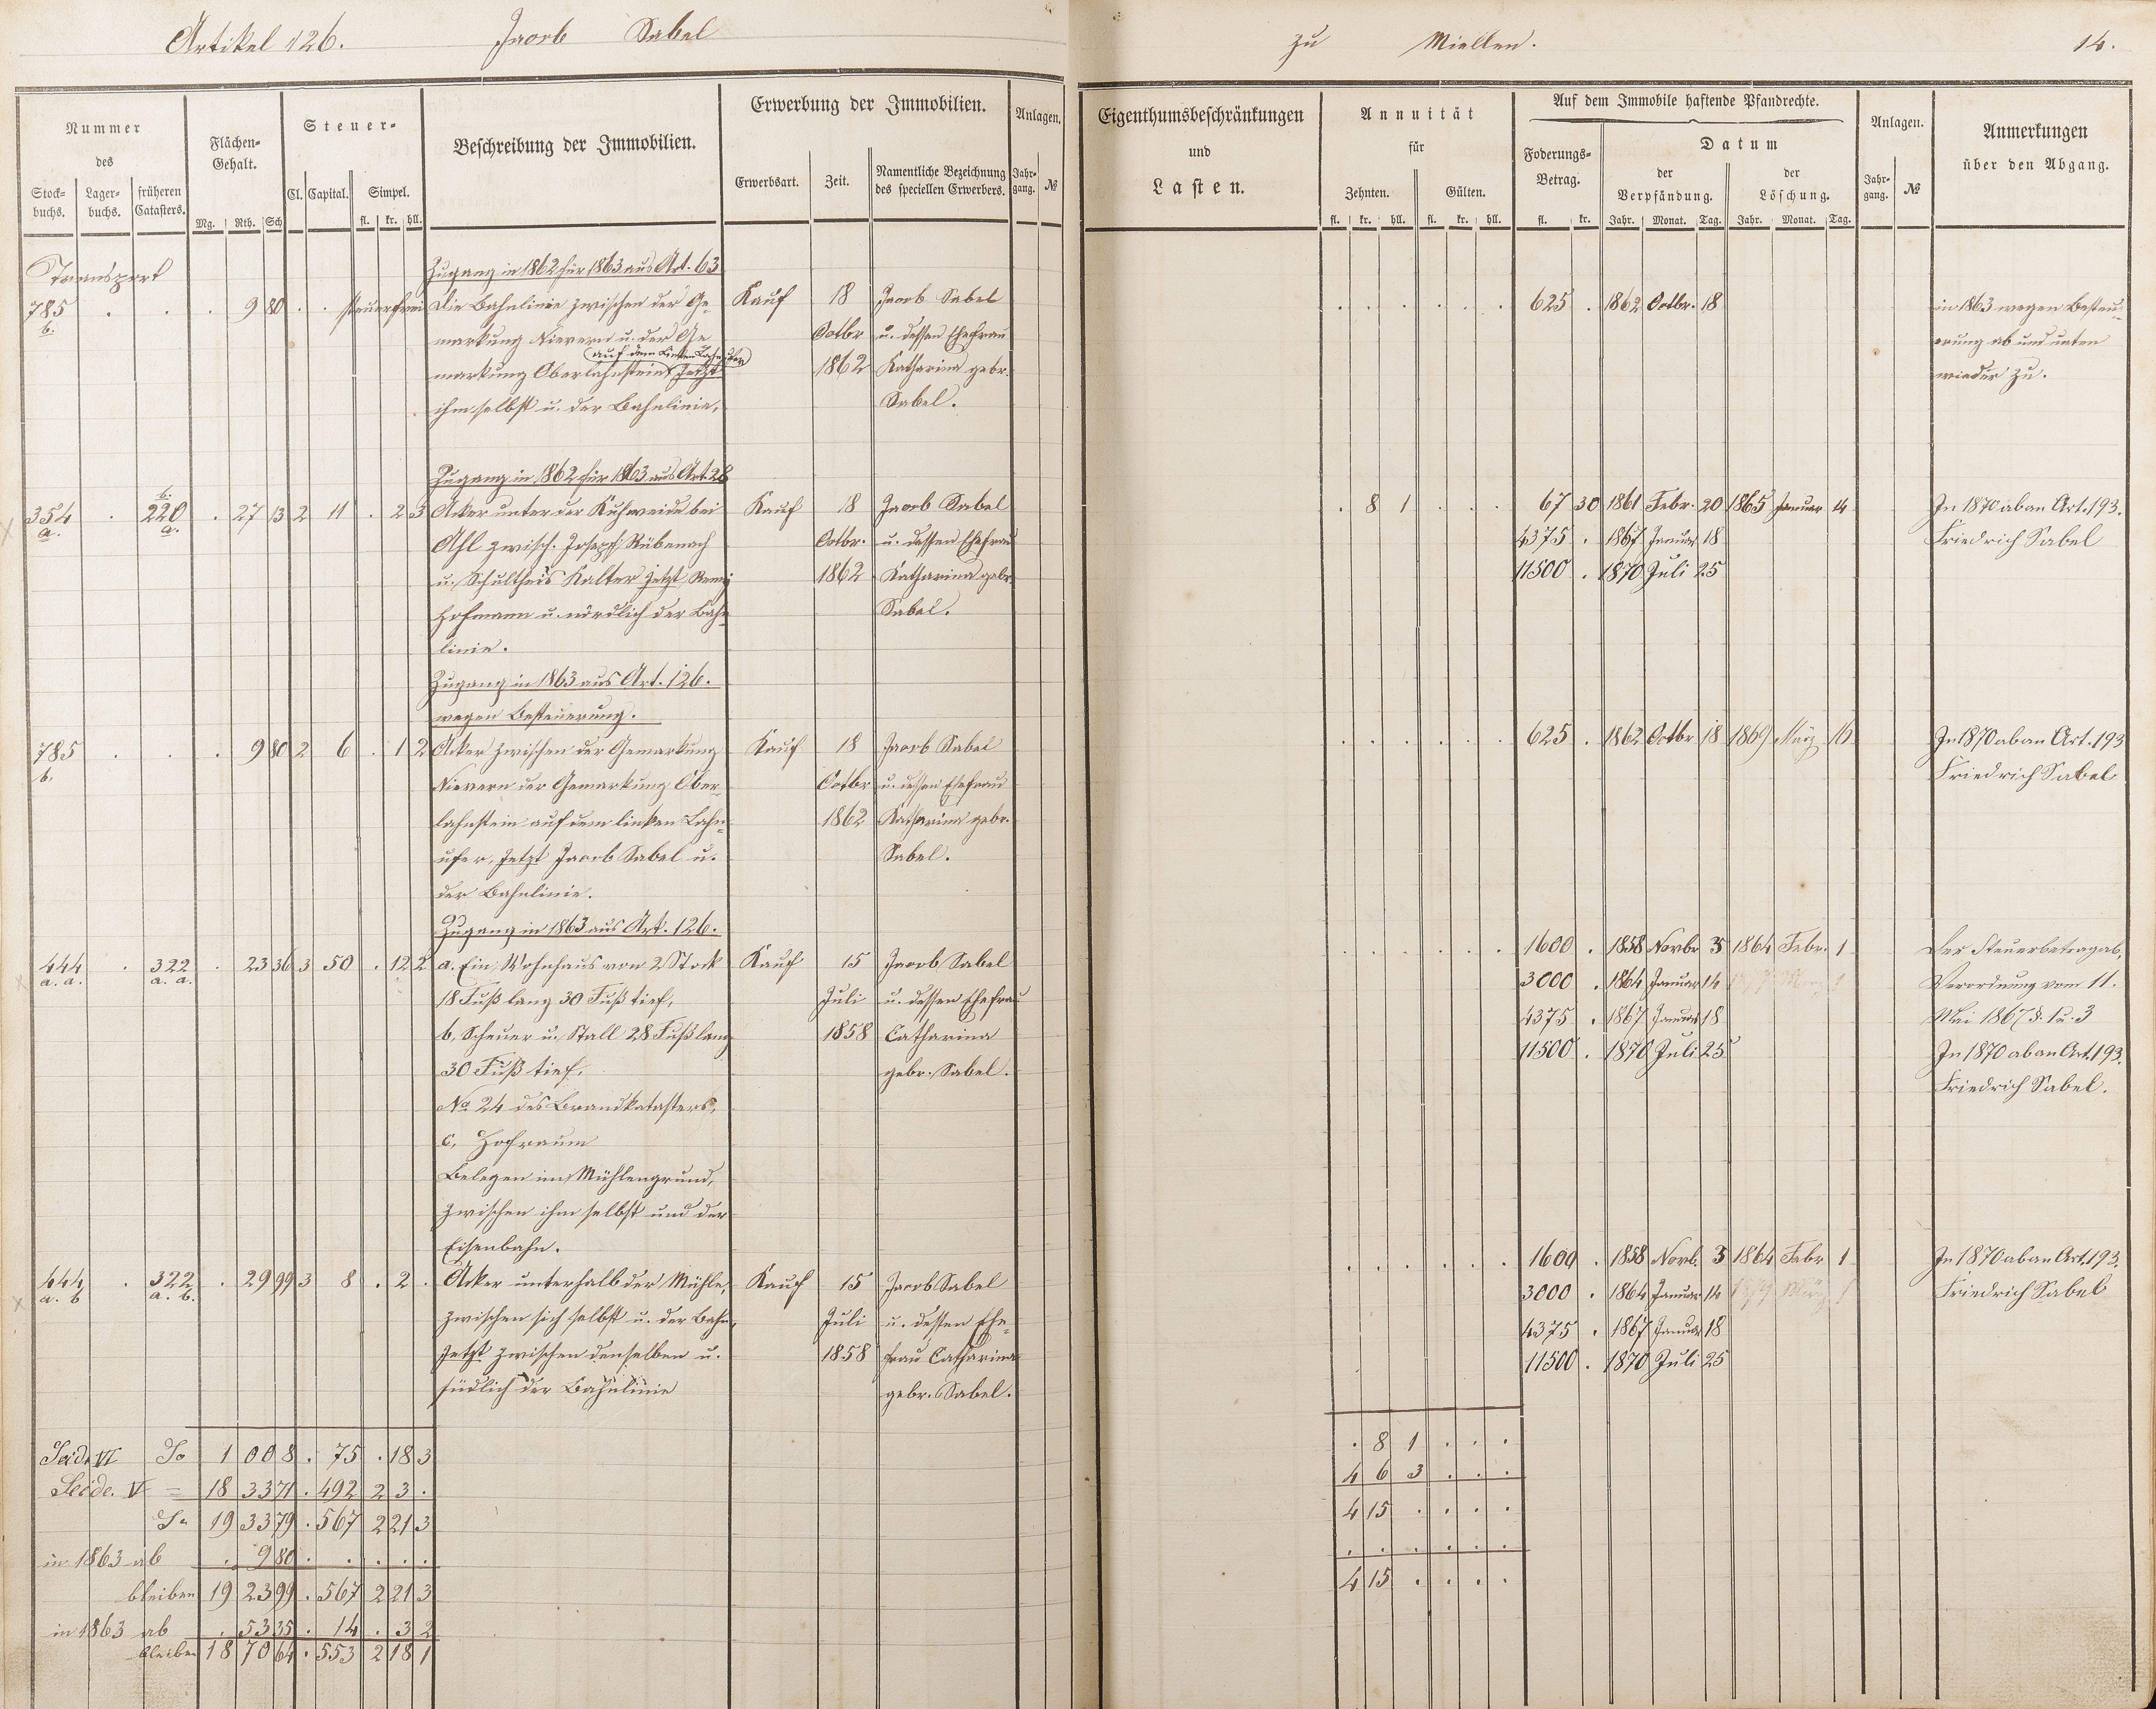 Artikel 126. Jacob Sabel zu Miellen. 14.
Nummer des
Stock-buchs. Lager-buchs. früheren Catasters.
Flächen-Gehalt.
Mg. Rth. Sch
Steuer-
Cl. Capital. Simpel.
fl. kr. hll.
Beschreibung der Immobilien.
Erwerbung der Immobilien.
Erwerbsart. Zeit. Namentliche Bezeichnung des speciellen Erwerbers.
Anlagen.
Jahr-gang. №
Eigenthumsbeschränkungen
und
Lasten.
Annuität
für
Zehnten. Gülten.
fl. kr. hll. fl. kr. hll.
Auf dem Immobile haftende Pfandrechte.
Foderungs-Betrag.
fl. kr.
Datum
der Verpfändung. der Löschung.
Jahr. Monat. Tag. Jahr. Monat. Tag.
Anlagen.
Jahr-gang. №
Anmerkungen
über den Abgang.
Transport
Zugang in 1862 für 1863 aus Art. 63
785 . . . 9 80 . . steuerfrei Die Bahnlinie zwischen der Ge- Kauf 18 Jacob Sabel . . . . . . 625 . 1862 Octbr. 18 in 1863 wegen Besteu-
b. markung Nievern u. der Ge Octbr u. dessen Ehefrau erung ab und unten
auf dem linken Lahnufer
markung Oberlahnstein jetzt 1862 Katharina gebr. wieder zu.
ihm selbst u. der Bahnlinie, Sabel.
Zugang in 1862 für 1863 aus Art. 28
b.
354 . 220 . 27 13 2 11 . 2 3 Acker unter der Kuhweide bei Kauf 18 Jacob Sabel . 8 1 . . . 67 30 1861 Febr. 20 1865 Januar 14 In 1870 ab an Art. 193.
a. a. Ahl zwisch. Joseph Rübenach Octbr. u. dessen Ehefrau 4375 . 1867 Januar 18 Friedrich Sabel
u. Schultheis Kalter jetzt Remy 1862 Katharina gebr. 11500 . 1870 Juli 25
Hofmann u. nördlich der Bahn-Sabel.
linie.
Zugang in 1863 aus Art. 126.
wegen Besteuerung.
785 . . . 9 80 2 6 . 1 2 Acker zwischen der Gemarkung Kauf 18 Jacob Sabel . . . . . . 625 . 1862 Octbr 18 1869 März 16 In 1870 ab an Art. 193
b. Nievern der Gemarkung Ober- Octbr u. dessen Ehefrau Friedrich Sabel
lahnstein auf dem linken Lahn- 1862 Katharina gebr.
ufer, jetzt Jacob Sabel u. Sabel.
der Bahnlinie.
Zugang in 1863 aus Art. 126.
444 . 322 . 23 36 3 50 . 12 2 a. Ein Wohnhaus von 2 Stock Kauf 15 Jacob Sabel . . . . . . 1600 . 1858 Novbr 3 1864 Febr. 1 Der Steuerbetrag ab,
a. a. a. a. 18 Fuß lang 30 Fuß tief, Juli u. dessen Ehefrau 3000 . 1864 Januar 14 Verordnung vom 11.
b, Scheuer u. Stall 28 Fuß lang 1858 Catharina 4375 . 1867 Januar 18 Mai 1867 §. 1 u. 3
30 Fuß tief. gebr. Sabel. 11500 . 1870 Juli 25 In 1870 ab an Art. 193.
№ 24 des Brandkatasters, Friedrich Sabel.
c, Hofraum
Belegen im Mühlengrund,
zwischen ihm selbst und der
Eisenbahn.
444 . 322 . 29 99 3 8 . 2 . Acker unterhalb der Mühle, Kauf 15 Jacob Sabel . . . . . . 1600 . 1858 Novb. 3 1864 Febr 1 In 1870 ab an Art. 193.
a. b a. b. zwischen sich selbst u. der Bahn, Juli u. dessen Ehe- 3000 . 1864 Januar 14 Friedrich Sabel
jetzt zwischen denselben u. 1858 frau Catharina 4375 . 1867 Januar 18
südlich der Bahnlinie gebr. Sabel. 11500 . 1870 Juli 25
Seide VI Sa 1 00 8 . 75 . 18 3 . 8 1 . . .
Seide. V = 18 33 71 . 492 2 3 . 4 6 3 . . .
Sa 19 33 79 . 567 2 21 3 4 15 . . . .
in 1863 ab . 9 80 . . . . . . . . . . .
bleiben 19 23 99 . 567 2 21 3 4 15 . . . .
in 1863 ab . 53 35 . 14 . 3 2
bleiben 18 70 64 . 553 2 18 1